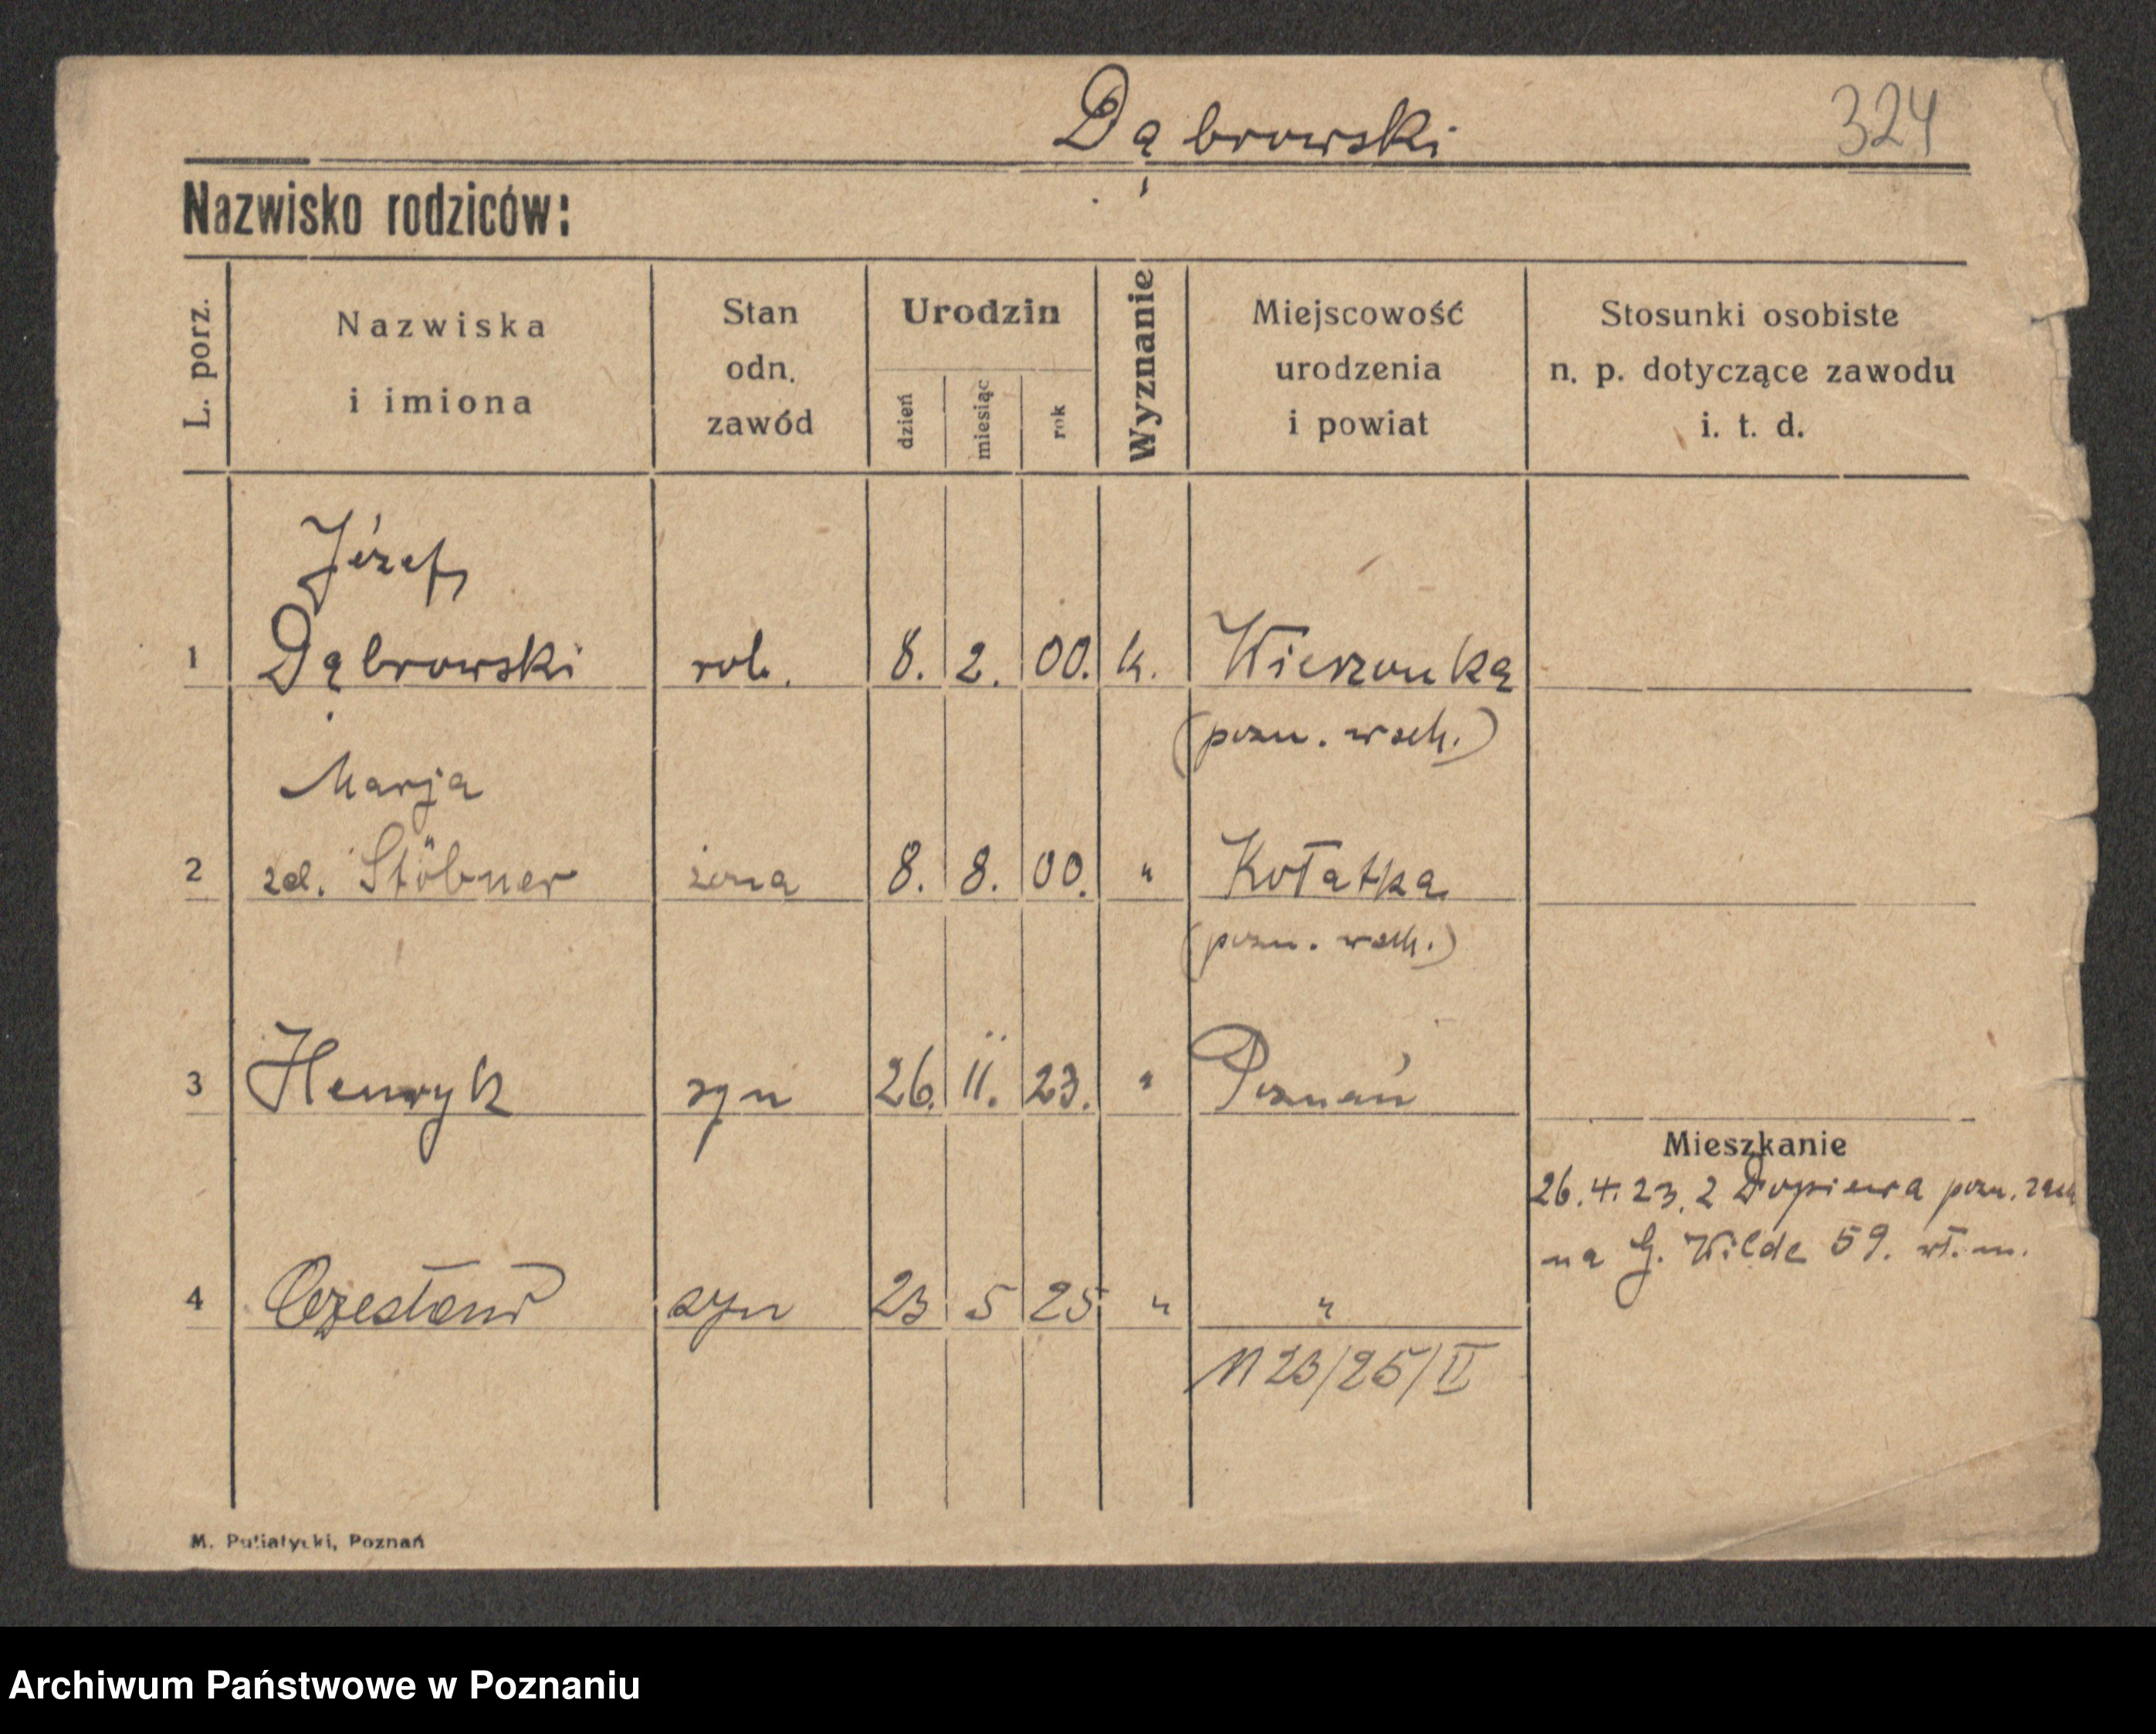 Dąbrowski 324
Nazwisko rodziców:
L. porz.
Nazwiska
i imiona
Stan
odn.
zawód
Urodzin
dzień
miesiąc
rok
Wyznanie
Miejscowość
urodzenia
i powiat
Stosunki osobiste
n. p. dotyczące zawodu
i. t. d.
Józef
1 Dąbrowski rob. 8. 2. 00. k. Wierzonka
(pozn. wsch.)
Marja
2 zd. Stöbner żona 8. 8. 00. " Kołatka
(pozn. wsch.)
3 Henryk syn 26. 11. 23. " Poznań
Mieszkanie
26.4.23. z Dopiewa pozn. zach
na G. Wilde 59. wł. m.
4 Czesław syn 23 5 25 " "
M 23/25/II
M. Putiatycki, Poznań
Archiwum Państwowe w Poznaniu